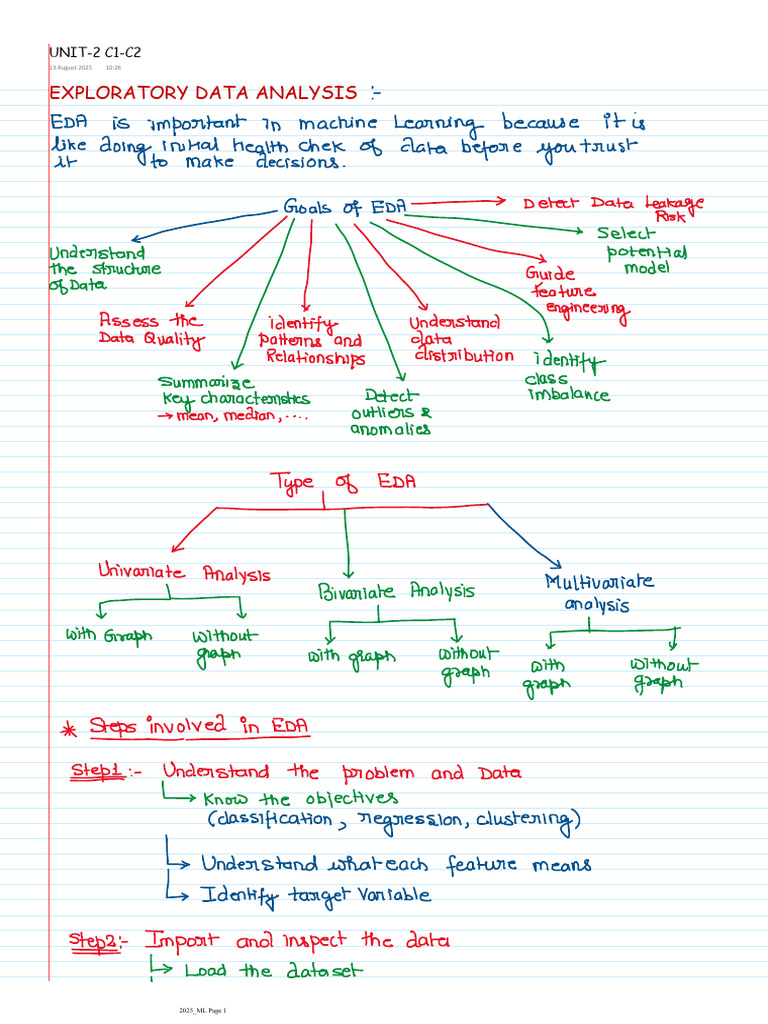 UNIT-2 C1-C2
13 August 2025 10:26
EXPLORATORY DATA ANALYSIS :-
EDA is important in machine Learning because it is
like doing initial health chek of data before you trust
it to make decisions.
Goals of EDA
Detect Data Leakage
Risk
Select
potential
model
Understand
the structure
of Data
Guide
feature
engineering
Assess the
Data Quality
identify
Patterns and
Relationships
Understand
data
distribution
identify
class
imbalance
Summarize
key characteristics
→ mean, median, ....
Detect
outliers &
anomalies
Type of EDA
Univariate Analysis
Bivariate Analysis
Multivariate
analysis
with Graph
without
graph
with graph
without
graph
with
graph
without
graph
* Steps involved in EDA
Step1 :- Understand the problem and Data
Know the objectives
(classification, regression, clustering)
Understand what each feature means
Identify target Variable
Step2 :- Import and inspect the data
Load the dataset
2025_ML Page 1